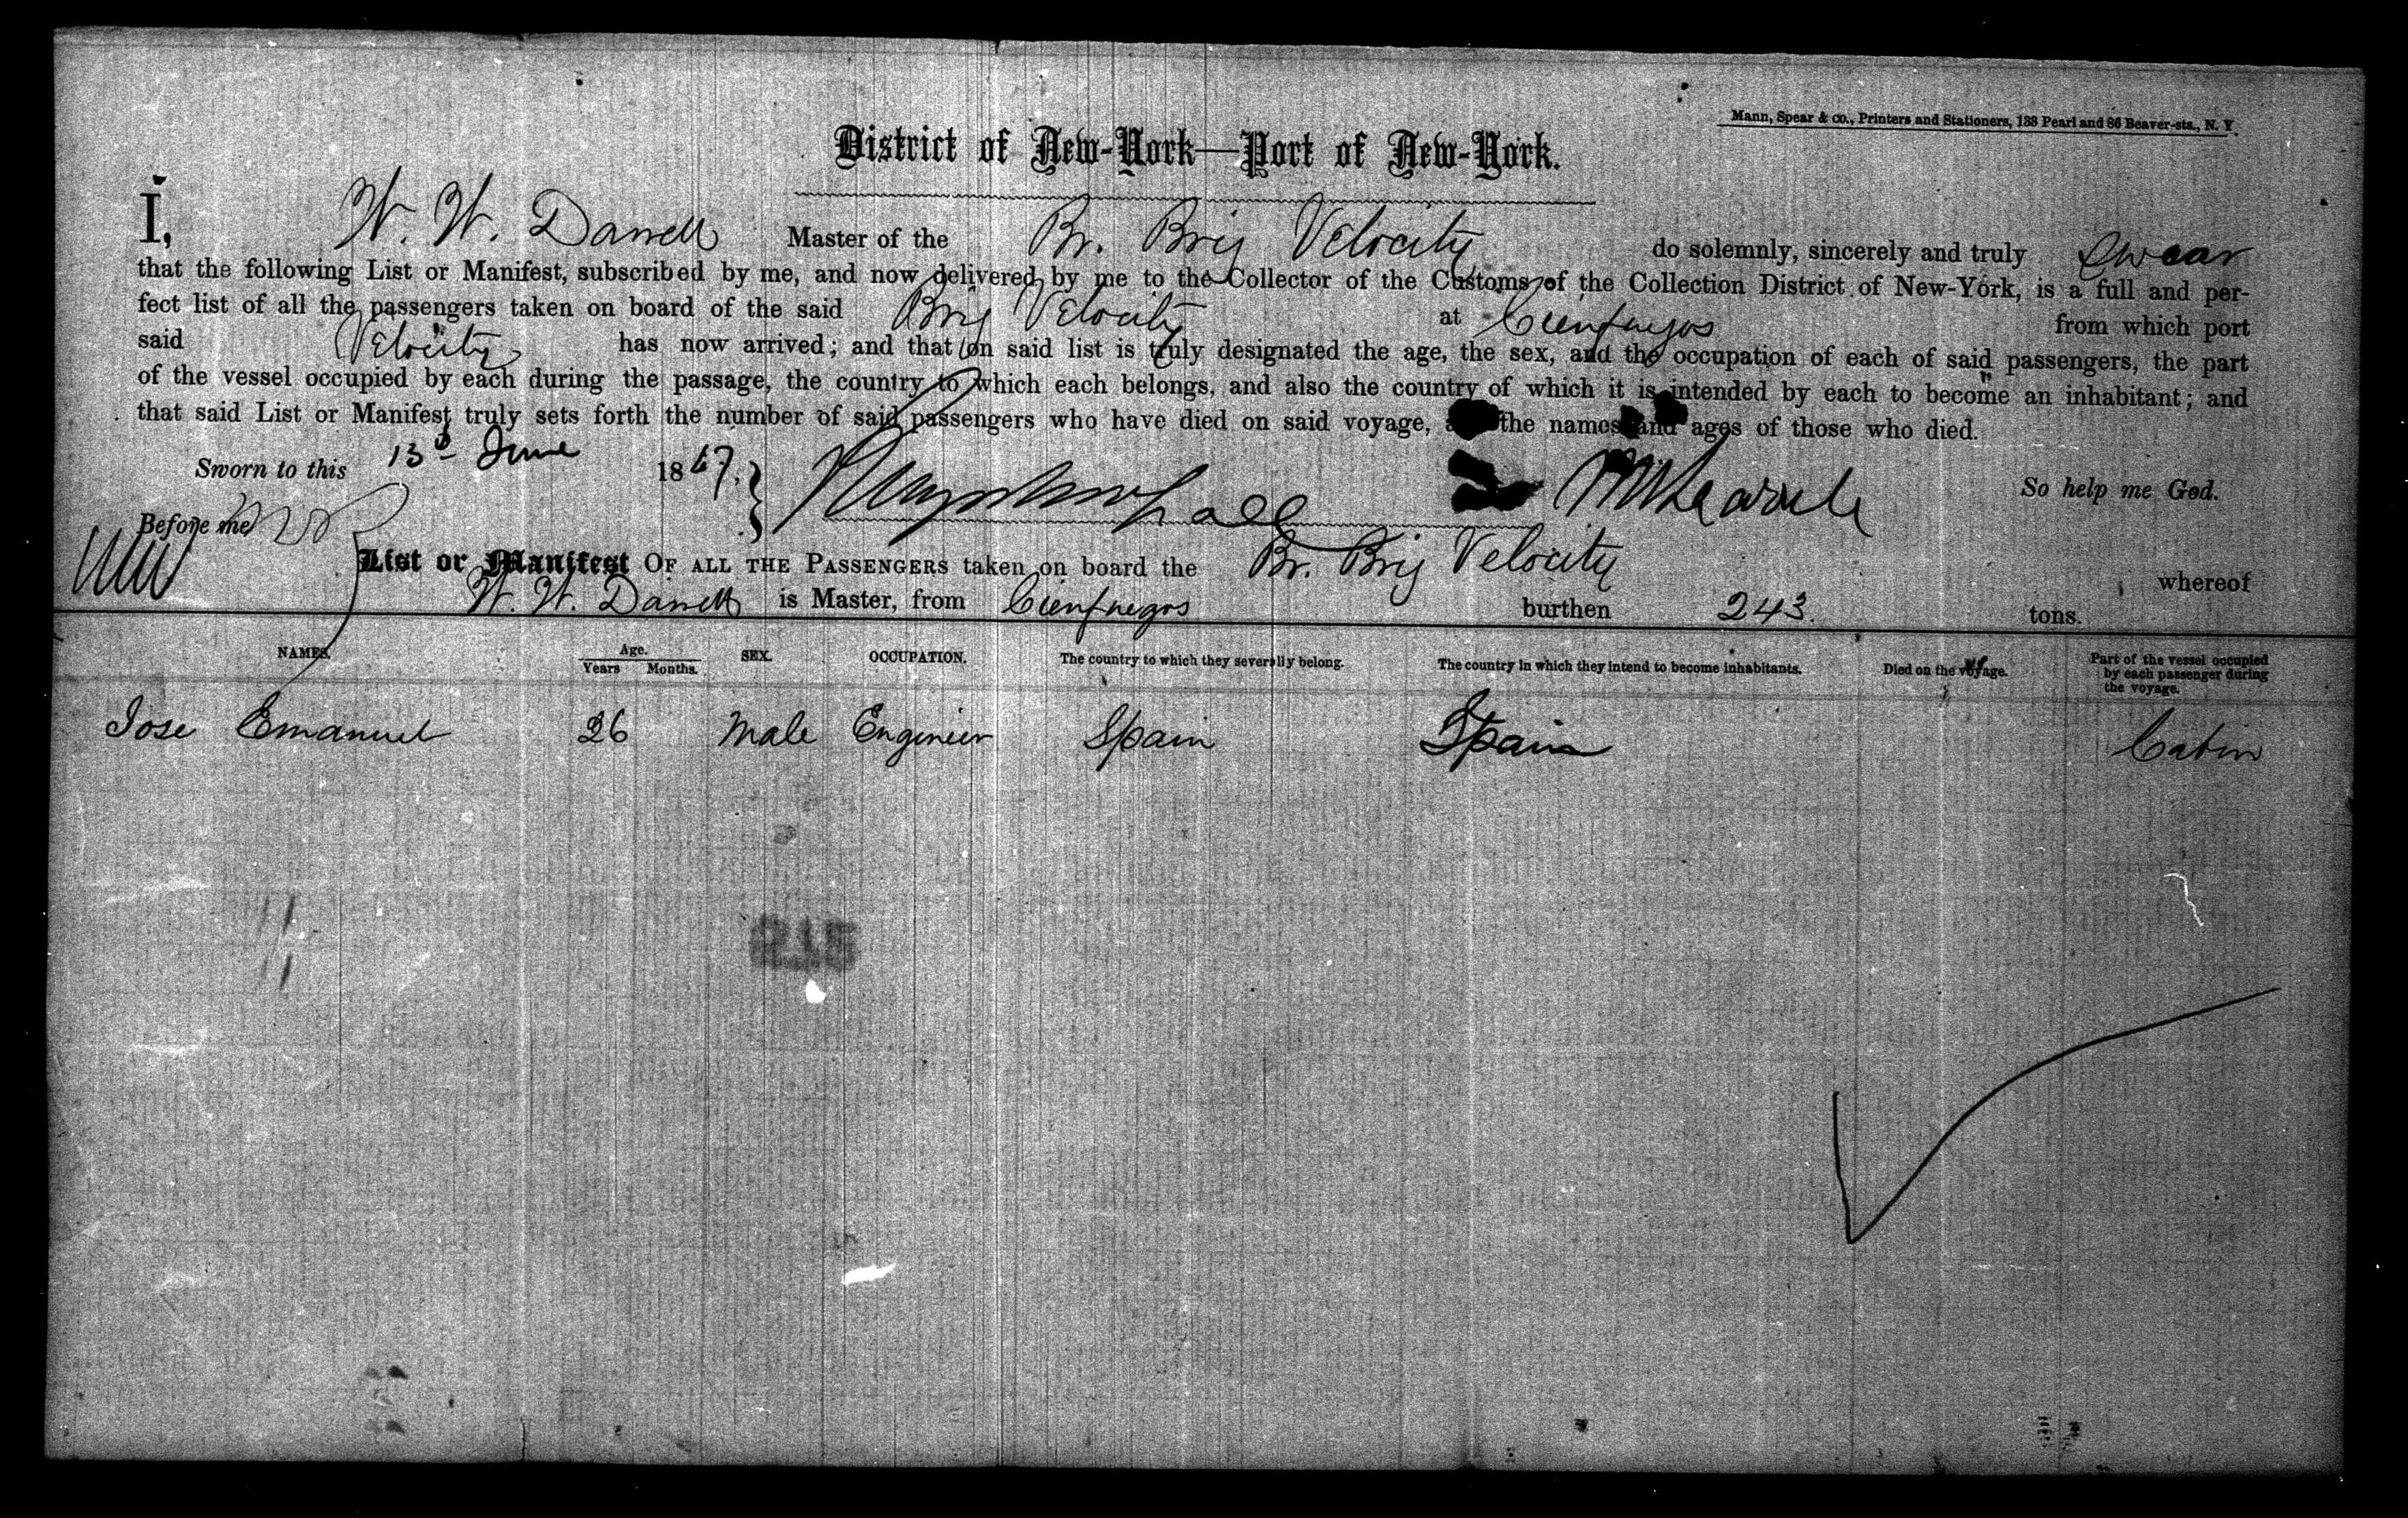 Mann, Spear & co., Printers and Stationers, 138 Pearl and 86 Beaver-sts., N. Y.
District of New-York—Port of New-York.
I, W. W. Darrell Master of the Br. Brig Velocity do solemnly, sincerely and truly Swear
that the following List or Manifest, subscribed by me, and now delivered by me to the Collector of the Customs of the Collection District of New-York, is a full and per-
fect list of all the passengers taken on board of the said Brig Velocity at Cienfuegos from which port
said Velocity has now arrived; and that on said list is truly designated the age, the sex, and the occupation of each of said passengers, the part
of the vessel occupied by each during the passage, the country to which each belongs, and also the country of which it is intended by each to become an inhabitant; and
that said List or Manifest truly sets forth the number of said passengers who have died on said voyage, the names and ages of those who died.
Sworn to this 13th June 1867. So help me God.
Before me
List or Manifest OF ALL THE PASSENGERS taken on board the Br. Brig Velocity whereof
W. W. Darrell is Master, from Cienfuegos burthen 243 tons.
NAMES. Age. Years Months. SEX. OCCUPATION. The country to which they severally belong. The country in which they intend to become inhabitants. Died on the voyage. Part of the vessel occupied by each passenger during the voyage.
Jose Emanuel 26 Male Engineer Spain Spain Cabin